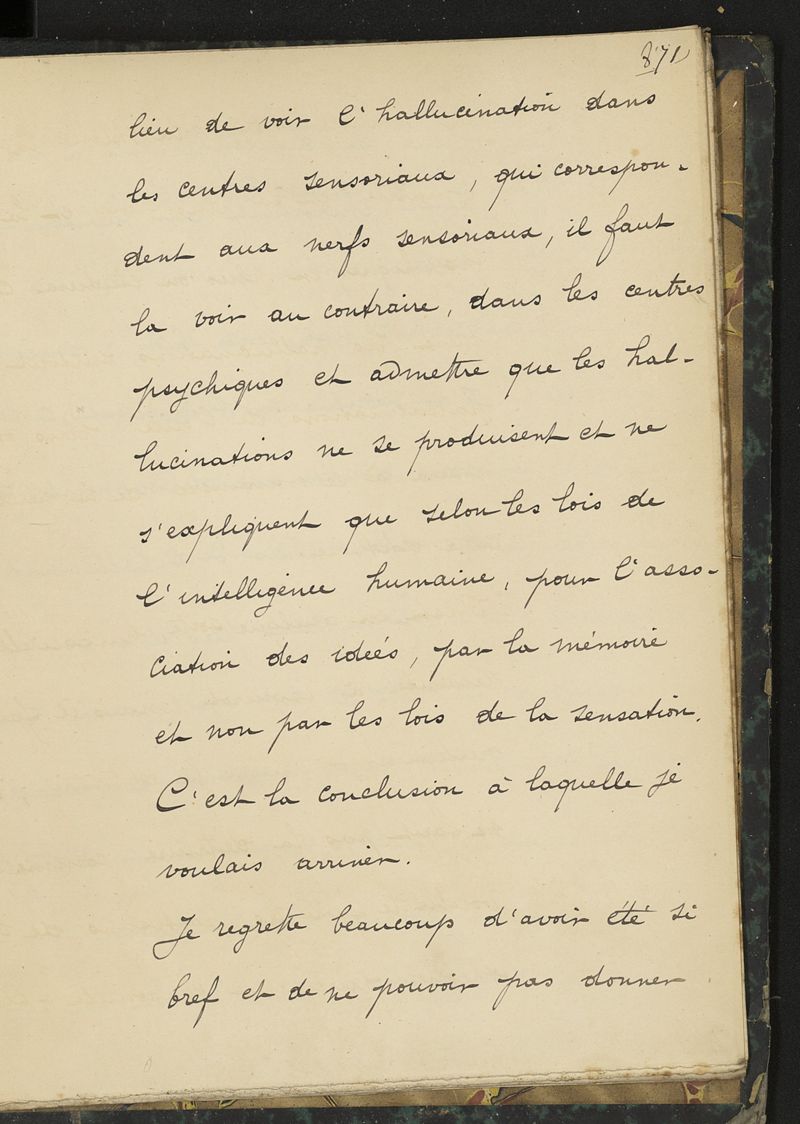 871
lieu de voir l'hallucination dans
les centres sensoriaux, qui correspon-
dent aux nerfs sensoriaux, il faut
la voir au contraire, dans les centres
psychiques et admettre que les hal-
lucinations ne se produisent et ne
s'expliquent que selon les lois de
l'intelligence humaine, pour l'asso-
ciation des idées, par la mémoire
et non par les lois de la sensation.
C'est la conclusion à laquelle je
voulais arriver.
Je regrette beaucoup d'avoir été si
bref et de ne pouvoir pas donner